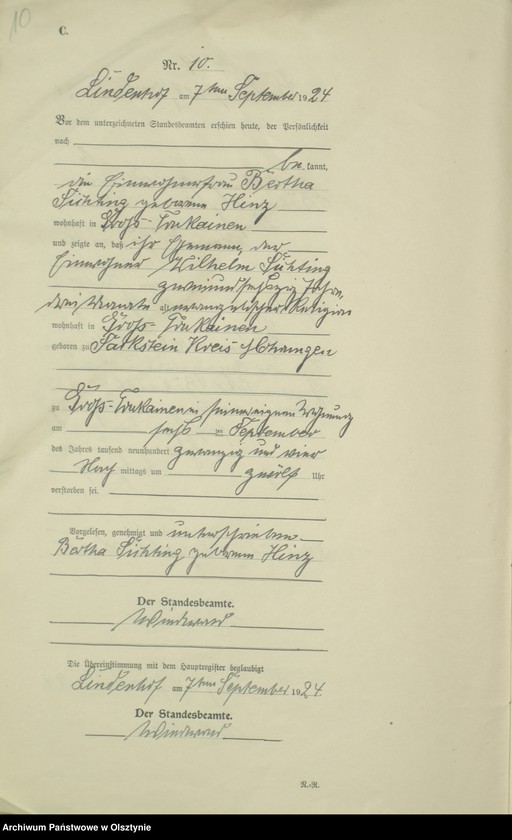 10
C.
Nr. 10.
Lindenhof am 7ten September 1924
Vor dem unterzeichneten Standesbeamten erschien heute, der Persönlichkeit
nach
be kannt,
die Einwohnerfrau Bertha
geborene Hinz
wohnhaft in Groß-
und zeigte an, daß ihr Ehemann, der
Einwohner Wilhelm
zweiundsechzig Jahre,
drei Monate alt, evangelischer Religion
wohnhaft in Groß-
geboren zu Kreis Mohrungen
zu Groß- in seiner eigenen Wohnung
am sechs ten September
des Jahres tausend neunhundert zwanzig und vier
Nach mittags um zwölf Uhr
verstorben sei.
Vorgelesen, genehmigt und unterschrieben
Bertha geborene Hinz
Der Standesbeamte.
Die Übereinstimmung mit dem Hauptregister beglaubigt
Lindenhof am 7ten September 1924
Der Standesbeamte.
N.-R.
Archiwum Państwowe w Olsztynie